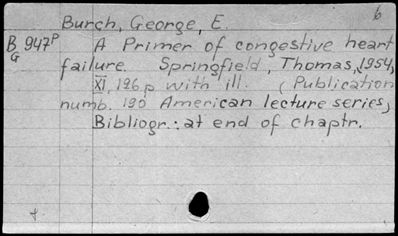 6
Burch, George, E.
B 947P A Primer of congestive heart
G failure. Springfield, Thomas, 1954,
XI, 126 p with ill. (Publication
numb. 190 American lecture series)
Bibliogr.: at end of chaptr.